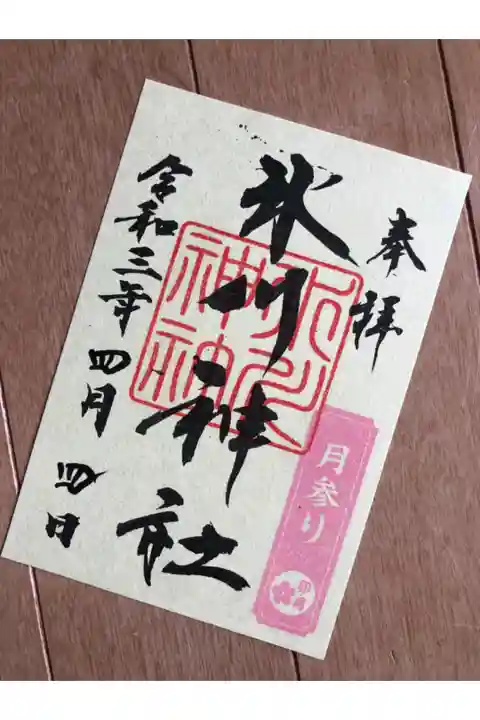 奉拝
氷川神社
氷川神社
月参り
卯月
令和三年四月四日